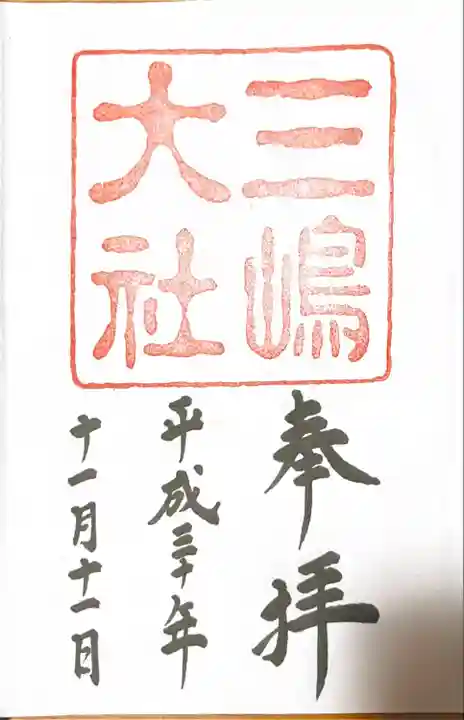 三嶋
大社
奉拝
平成三十年
十一月十一日